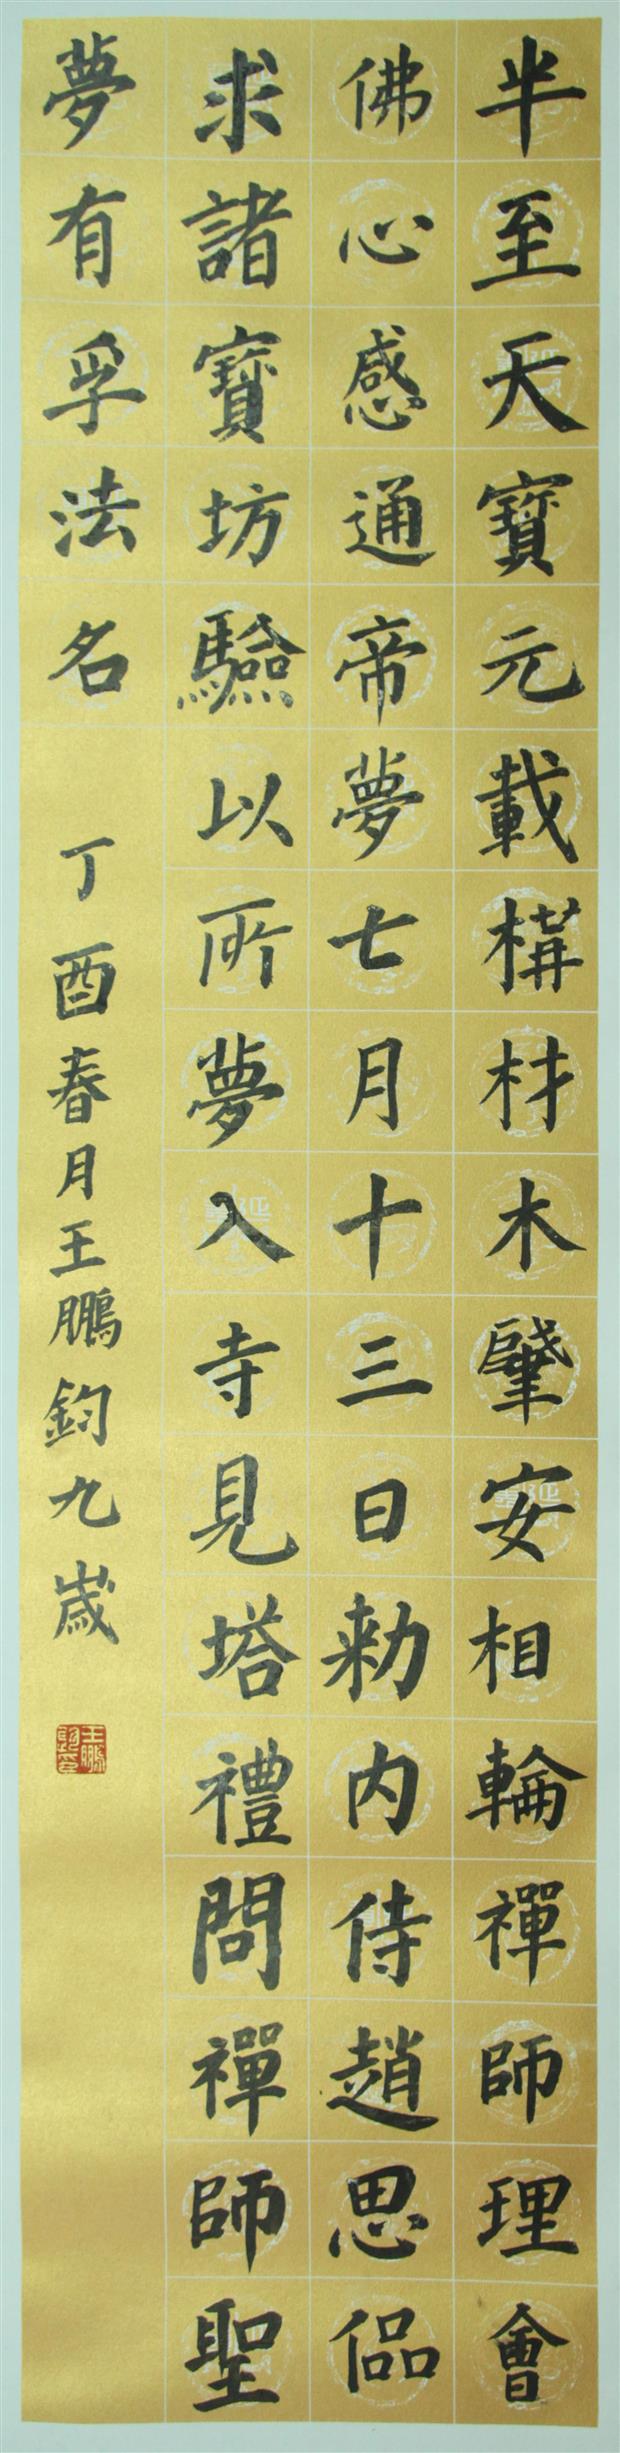 半至天寶元載構材木肇安相輪禪師理會
佛心感通帝夢七月十三日勑内侍趙思偘
求諸寶坊驗以所夢入寺見塔禮問禪師聖
夢有孚法名
丁酉春月王鵬鈞九歲